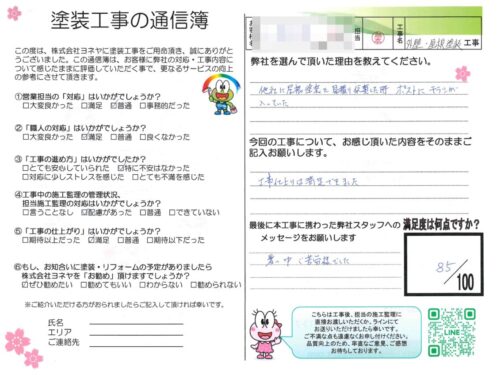 塗装工事の通信簿
この度は、株式会社ヨネヤに塗装工事をご用命頂き、誠にありがと
うございました。この通信簿は、お客様に弊社の対応・工事内容に
ついて感じたままに評価していただく事で、更なるサービスの向上
の参考にさせて頂きます。
①営業担当の「対応」はいかがでしょうか?
□大変良かった □満足 ☑普通 □事務的だった
②「職人の対応」はいかがでしょうか?
□大変良かった ☑満足 □普通 □良くなかった
③「工事の進め方」はいかがでしたか?
□とても安心していられた ☑特に不安はなかった
□対応に少しストレスを感じた □とても不満を感じた
④工事中の施工監理の管理状況、
担当施工監理の対応はいかがでしたか?
□言うことなし ☑配慮があった □普通 □できていない
⑤「工事の仕上がり」はいかがでしょうか?
□期待以上だった ☑満足 □普通 □期待以下だった
⑥もし、お知合いに塗装・リフォームの予定がありましたら
株式会社ヨネヤを「お勧め」頂けますでしょうか?
☑ぜひ勧めたい □勧めてもいい □わからない □勧められない
※ご紹介いただける方がおられましたらご記入して頂ければ幸いです。
氏名
エリア
ご連絡先
担当
工事名
外壁・屋根塗装 工事
弊社を選んで頂いた理由を教えてください。
入っていた
今回の工事について、お感じ頂いた内容をそのままご
記入お願いします。
最後に本工事に携わった弊社スタッフへの
メッセージをお願いします
暑い中ご苦労様でした
満足度は何点ですか?
85
/100
こちらは工事後、担当の施工監理に
直接お渡しいただくか、ラインにて
お送りいただけましたら幸いです。
ご不満な点も遠慮なくお申し付けください。
品質向上のため、率直なご意見、ご感想
お待ちしております。
LINE